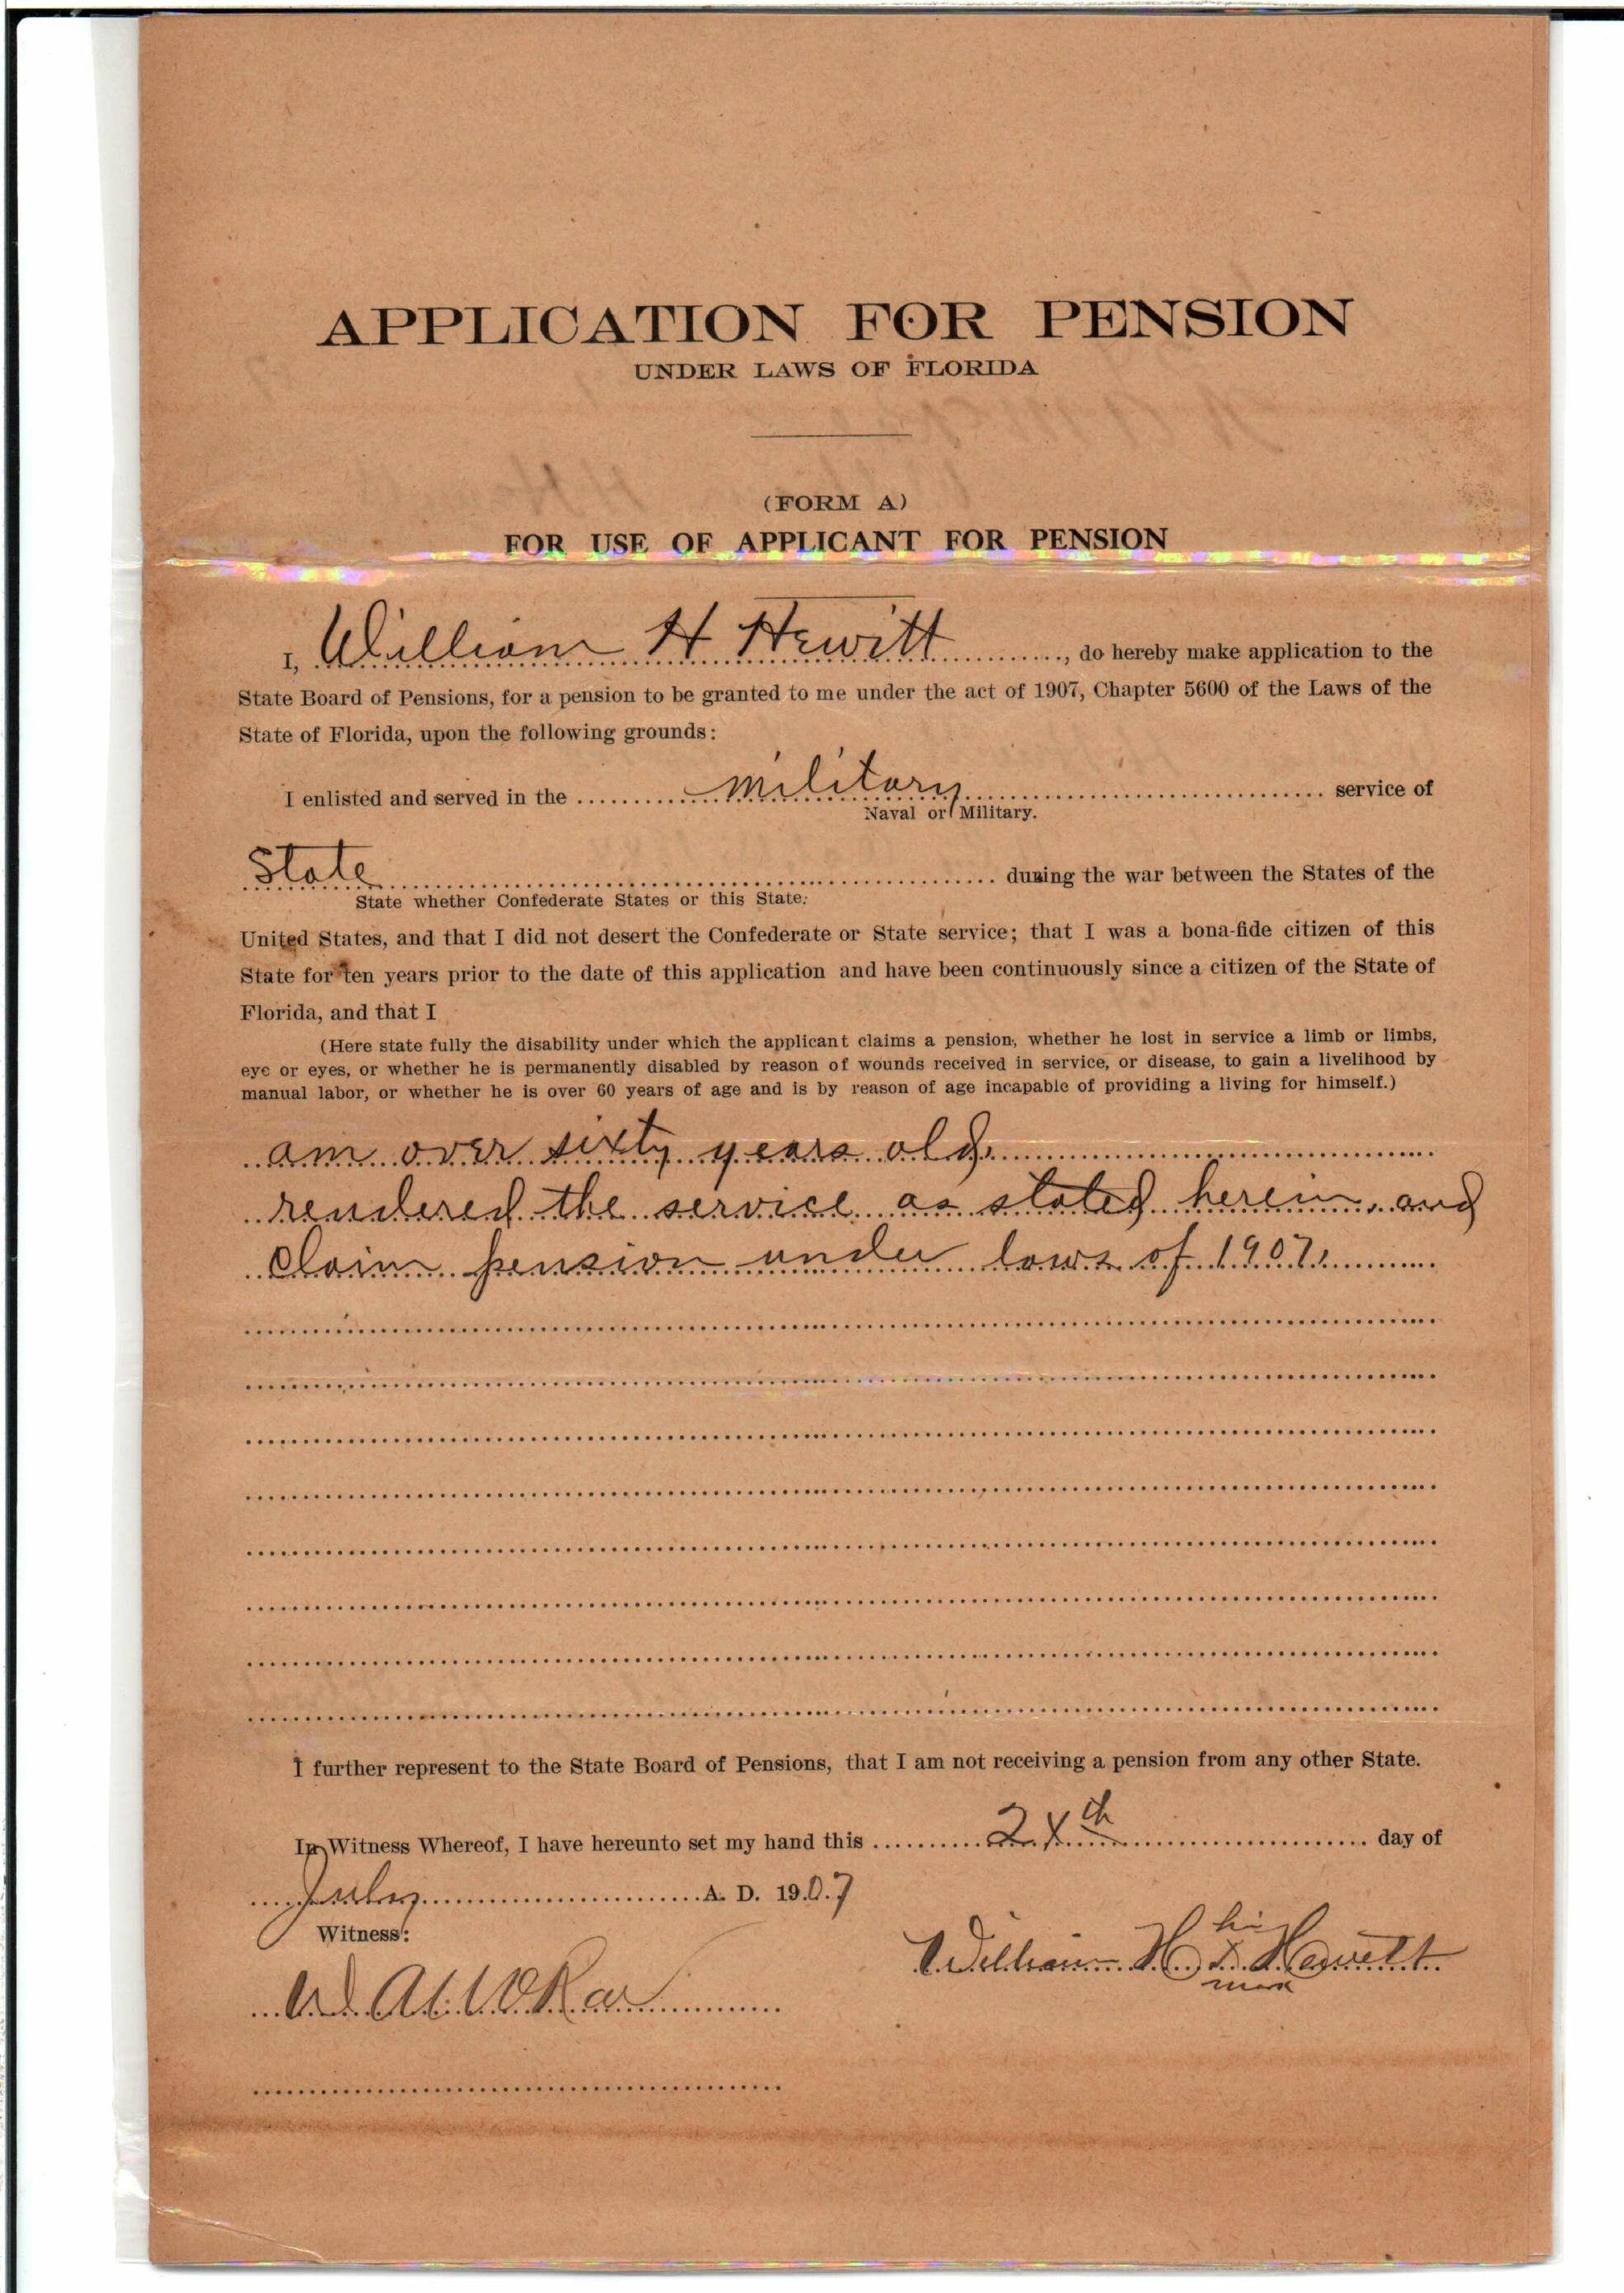 APPLICATION FOR PENSION
UNDER LAWS OF FLORIDA
(FORM A)
FOR USE OF APPLICANT FOR PENSION
I, William H Hewitt, do hereby make application to the
State Board of Pensions, for a pension to be granted to me under the act of 1907, Chapter 5600 of the Laws of the
State of Florida, upon the following grounds:
I enlisted and served in the military service of
Naval or Military.
State during the war between the States of the
State whether Confederate States or this State.
United States, and that I did not desert the Confederate or State service; that I was a bona-fide citizen of this
State for ten years prior to the date of this application and have been continuously since a citizen of the State of
Florida, and that I
(Here state fully the disability under which the applicant claims a pension, whether he lost in service a limb or limbs,
eye or eyes, or whether he is permanently disabled by reason of wounds received in service, or disease, to gain a livelihood by
manual labor, or whether he is over 60 years of age and is by reason of age incapable of providing a living for himself.)
am over sixty years old.
rendered the service as stated herein, and
claim pension under laws of 1907.
I further represent to the State Board of Pensions, that I am not receiving a pension from any other State.
In Witness Whereof, I have hereunto set my hand this day of
July A. D. 1907
Witness:
his
William H. X Hewitt
mark